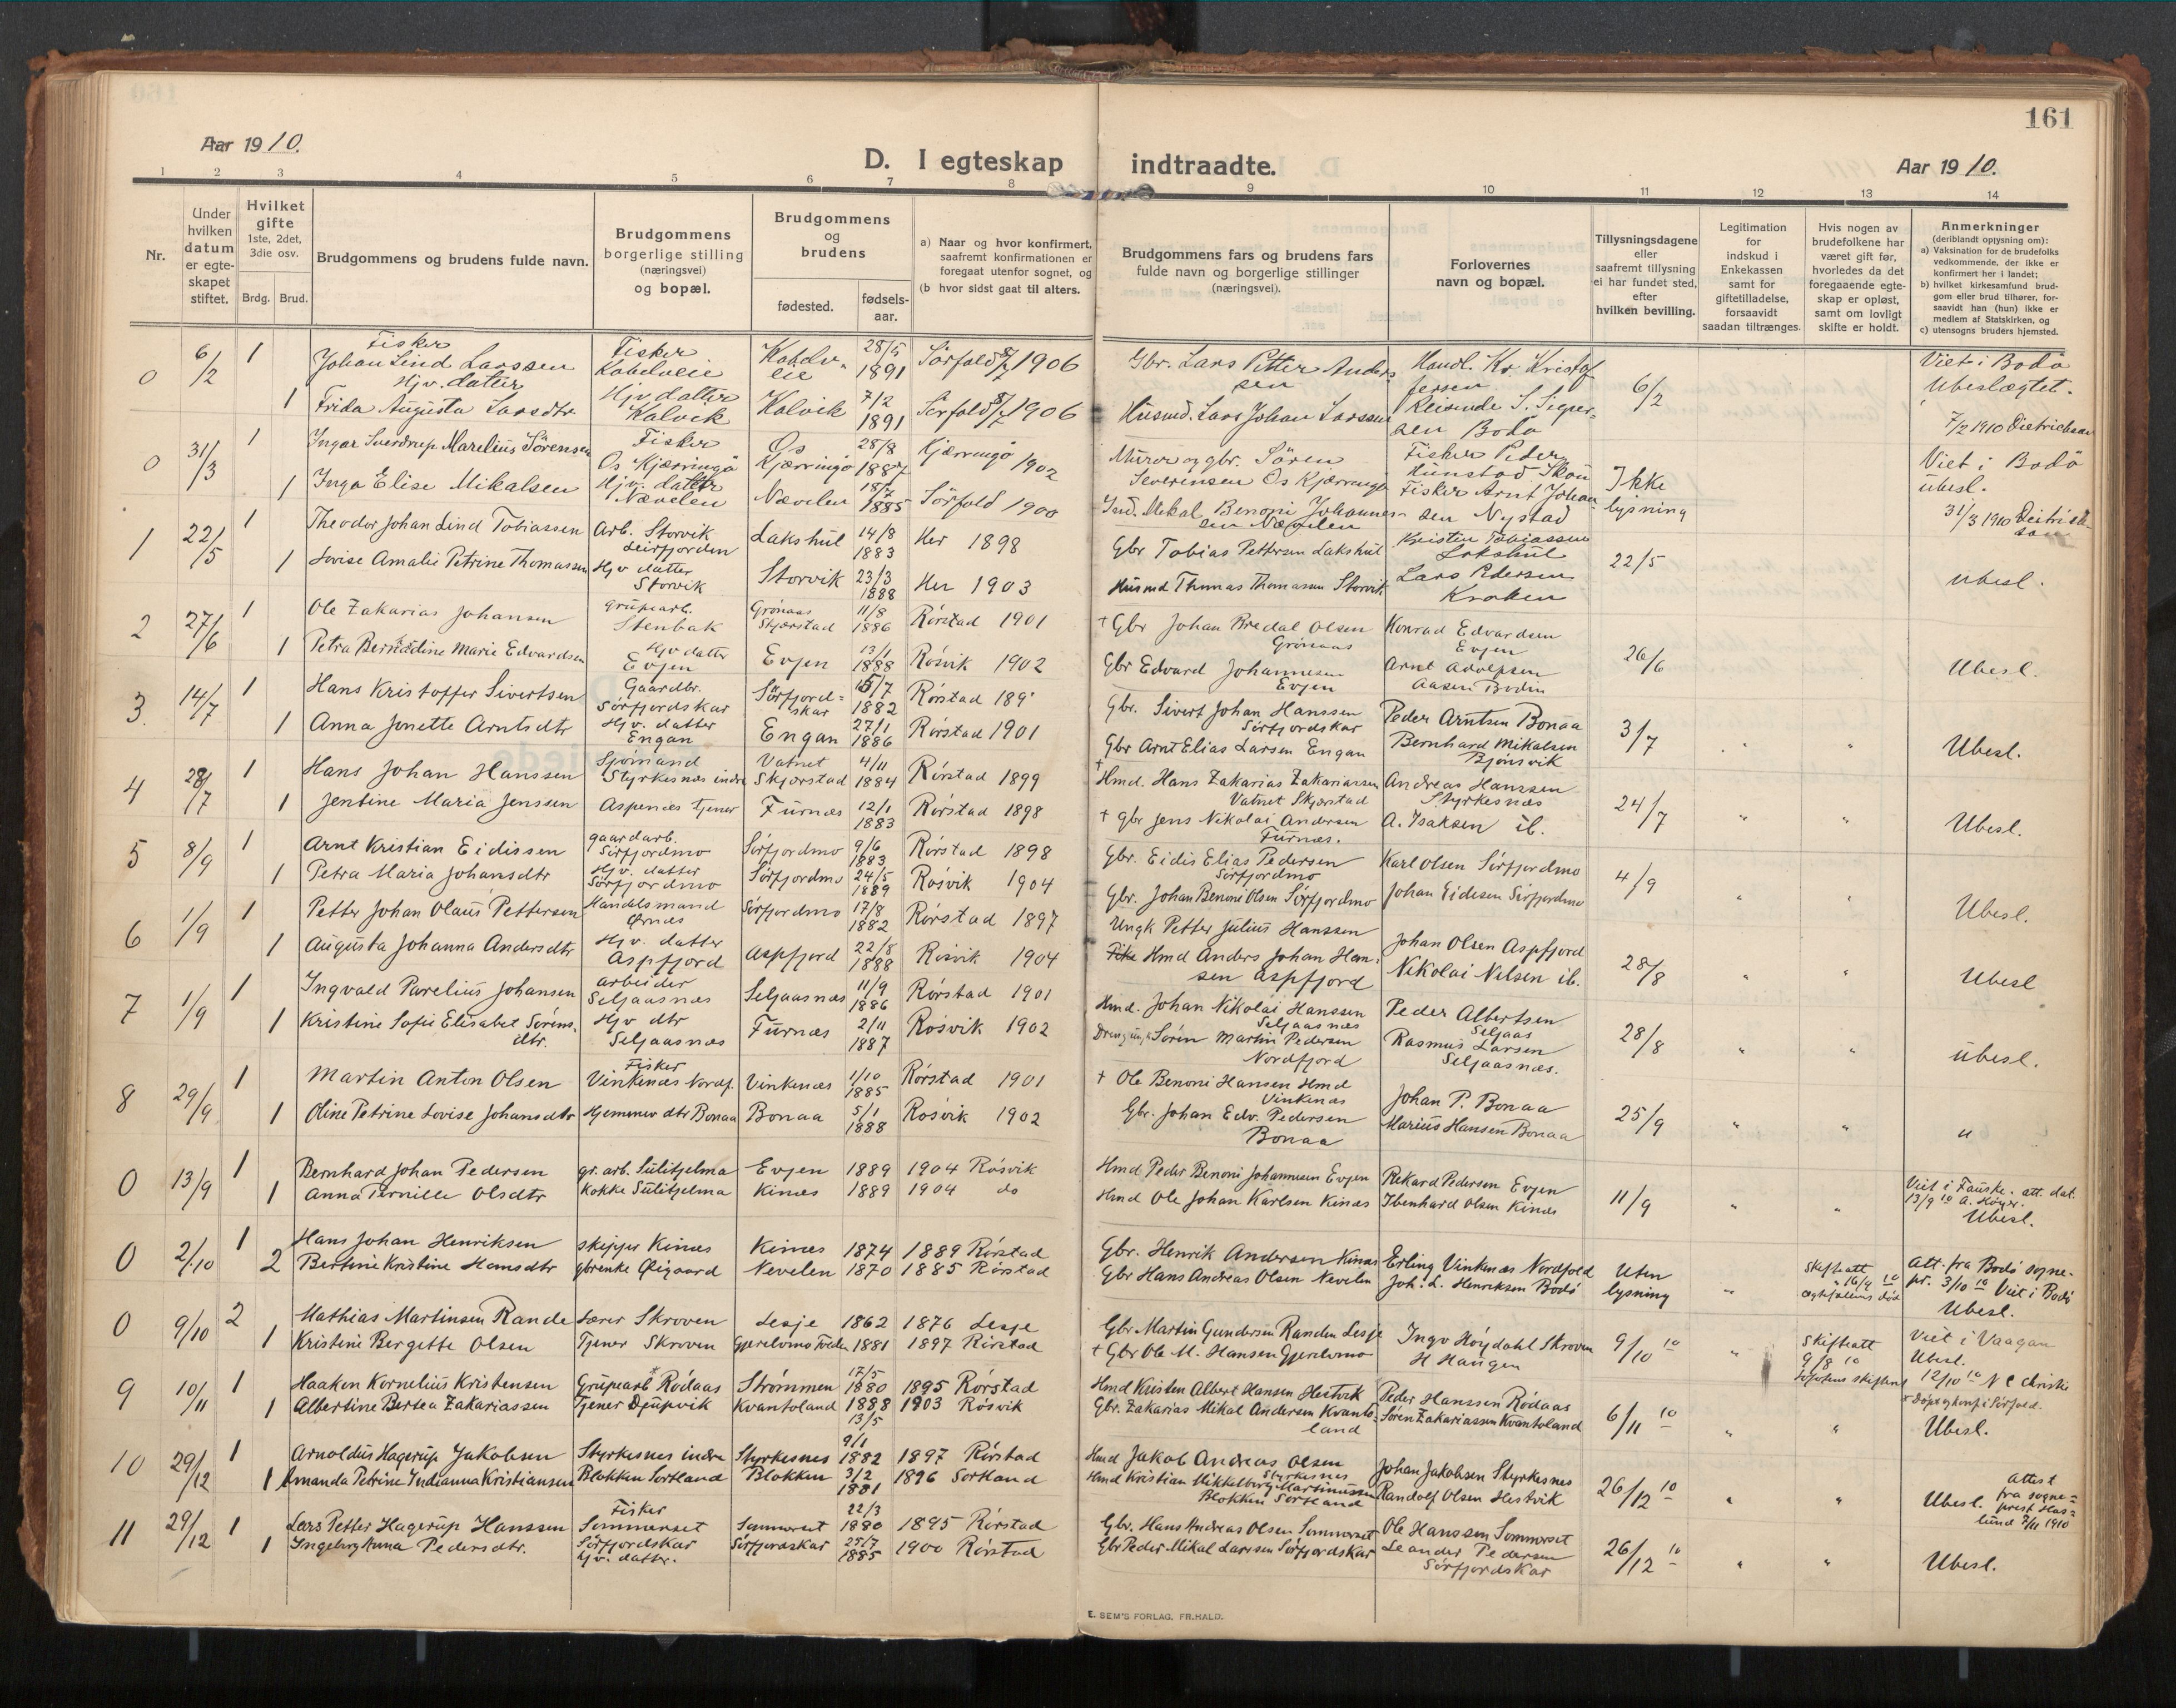 161
Aar 1910.
D. I egteskap indtraadte.
Aar 1910.
1 2 3 4 5 6 7 8 9 10 11 12 13 14
Nr.
Under hvilken datum er egteskapet stiftet.
Hvilket gifte 1ste, 2det, 3die osv.
Brdg. Brud.
Brudgommens og brudens fulde navn.
Brudgommens borgerlige stilling (næringsvei) og bopæl.
Brudgommens og brudens
fødested.
fødsels-aar.
a) Naar og hvor konfirmert, saafremt konfirmationen er foregaat utenfor sognet, og
(b hvor sidst gaat til alters.
Brudgommens fars og brudens fars fulde navn og borgerlige stillinger (næringsvei).
Forlovernes navn og bopæl.
Tillysningsdagene eller saafremt tillysning ei har fundet sted, efter hvilken bevilling.
Legitimation for indskud i Enkekassen samt for giftetilladelse, forsaavidt saadan tiltrænges.
Hvis nogen av brudefolkene har været gift før, hvorledes da det foregaaende egteskap er opløst, samt om lovligt skifte er holdt.
Anmerkninger (deriblandt oplysning om):
a) Vaksination for de brudefolks vedkommende, der ikke er konfirmert her i landet;
b) hvilket kirkesamfund brudgom eller brud tilhører, forsaavidt han (hun) ikke er medlem af Statskirken, og
c) utensogns bruders hjemsted.
0 6/2 1 Fisker Johan Lind Larssen Fisker Kobelveie Kobelveie 28/5 1891 Sörfold 1906 Gbr. Lars Petter Andersen Handl. Kr. Kristoffersen 6/2 Viet i Bodö Ubeslægtet.
1 Hjv. datter Frida Augusta Larsdtr Hjv datter Kalvik Kalvik 7/2 1891 Sörfold 1906 Husmd. Lars Johan Larssen Reisende S. Bodö 7/2 1910 Dietrichson
0 31/3 1 Ingar Sverdrup Marelius Sörensen Fisker Os Kjærringö Os Kjærringö 28/8 1887 Kjærringö 1902 Murer og gbr. Sören Severinsen Os Kjærringö Fisker Peder Hunstad Ikke lysning Viet i Bodö ubesl.
1 Inga Elise Mikalsen Hjv. datter Nævelen Nævelen 1885 Sörfold 1900 Ind. Mikal Benoni Johannessen Nævelen Fisker Arnt Johansen Nystad 31/3 1910
1 22/5 1 Theodor Johan Lind Tobiassen Arb. Storvik Leirfjorden Lakshul 14/8 1883 Her 1898 Gbr Tobias Pettersen Lakshul Kristen Tobiassen Lakshul 22/5 ubesl.
1 Lovise Amalie Petrine Thomassen Hjv datter Storvik Storvik 23/3 1888 Her 1903 Husmd Thomas Thomassen Storvik Lars Pedersen Kraken
2 27/6 1 Ole Zakarias Johansen grubearb. Stenbak Grönaas Skjærstad 11/8 1886 Rørstad 1901 † Gbr Johan Bredal Olsen Grönaas Konrad Edvardsen Evjen 26/6 Ubesl.
1 Petra Bernedine Marie Edvardsen Hjv datter Evjen Evjen 13/1 1888 Røsvik 1902 Gbr Edvard Johannesen Evjen Arnt Adolfsen Aasen Bodin
3. 14/7 1 Hans Kristoffer Sivertsen Gaardbr. Sörfjordskar Sörfjordskar 15/7 1882 Rørstad 189 Gbr. Sivert Johan Hanssen Sörfjordskar Peder Arntsen Bonaa 3/7 Ubesl.
1 Anna Jonette Arntsdtr Hjv. datter Engan Engan 27/1 1886 Rørstad 1901 Gbr Arnt Elias Larsen Engan Bernhard Mikalsen Bjønsvik
4 28/7 1 Hans Johan Hanssen Sjømand Styrkesnæs indre Vatnet Skjærstad 4/11 1884 Rørstad 1899 † Hmd. Hans Zakarias Zakariassen Vatnet Skjærstad Andreas Hanssen Styrkesnæs 24/7 " " Ubesl.
1 Jentine Maria Jenssen Aspenæs tjener Furnæs 12/1 1883 Rørstad 1898 † gbr Jens Nikolai Andersen Furnæs. A. Isaksen ib.
5 8/9 1 Arnt Kristian Eidissen gaardarb. Sörfjordmo Sörfjordmo 9/6 1883 Rørstad 1898 Gbr. Eidis Elias Pedersen Sörfjordmo Karl Olsen Sörfjordmo 4/9 " " Ubesl.
1 Petra Maria Johansdtr Hjv. datter Sörfjordmo Sörfjordmo 24/5 1889 Røsvik 1904 Gbr. Johan Benoni Olsen Sörfjordmo Johan Eidesen Sörfjordmo
6 1/9 1 Petter Johan Olaus Pettersen Handelsmand Ørnes Sörfjordmo 17/8 1882 Rørstad 1897 Ungk Petter Julius Hanssen Johan Olsen Aspfjord 28/8 " " Ubesl
1 Augusta Johanna Andersdtr Hjv. datter Aspfjord Aspfjord 22/8 1888 Røsvik 1904 Hmd Anders Johan Hansen Aspfjord Nikolai Nilsen ib.
7 1/9 1 Ingvald Parelius Johansen arbeider Seljaasnæs Seljaasnæs 11/9 1886 Rørstad 1901 Hmd. Johan Nikolai Hanssen Seljaasnæs Peder Albertsen Seljaas 28/8 " " ubesl.
1 Kristine Sofie Elisabet Sørensdtr. Hjv dtr Seljaasnæs Furnæs 2/11 1887 Røsvik 1902 Søren Martin Pedersen Nordfjord Rasmus Larsen Seljaasnæs.
8 29/9 1 Martin Anton Olsen Fisker Vinkenæs Nordf. Vinkenæs 1/10 1885 Rørstad 1901 † Ole Benoni Hansen Hmd Vinkenæs Johan P. Bonaa 25/9 " " u
1 Oline Petrine Lovise Johansdtr Hjemmev dtr Bonaa Bonaa 5/1 1888 Røsvik 1902 Gbr. Johan Edv. Pedersen Bonaa Marius Hansen Bonaa
0 13/9 1 Bernhard Johan Pedersen gr. arb. Sulitjelma Evjen 1889 1904 Røsvik Hmd Peder Benoni Johannesen Evjen Rikard Pedersen Evjen 11/9 " " Viet i Fauske. att. dat. 13/9 10 A. Høyer. Ubesl.
1 Anna Pernille Olsdtr Kokke Sulitjelma Kines 1889 1904 do Hmd Ole Johan Karlsen Kines Ibenhard Olsen Kines
0 2/10 1 Hans Johan Henriksen skipper Kines Kines 1874 1889 Rørstad Gbr. Henrik Andersen Kines Erling Vinkenæs Nordfold Uten lysning " Skifteatt 16/9 10 Att. fra Bodø sognepr. 3/10 10 Viet i Bodø Ubesl.
2 Bertine Kristine Hansdtr gbrenke Øigaard Nevelen 1870 1885 Rørstad Gbr Hans Andreas Olsen Nevelen Joh. L. Henriksen Bodø
0 9/10 2 Mathias Martinsen Rande Lærer Skroven Lesje 1862 1876 Lesje Gbr. Martin Gundersen Randen Lesje Ingv Høydahl Skroven 9/10 10 " Skifteatt 9/8 10 Viet i Vaagan Ubesl. 12/10 10 N C Christie
1 Kristine Bergette Olsen Tjener Skroven Gjerelvmo Folden 1881 1897 Rørstad † Gbr Ole M. Hansen Gjerelvmo H Haugen
9 10/11 1 Haakon Kornelius Kristensen Grubearb Rödaas Strømmen 17/5 1880 1895 Rørstad Hmd Kristen Albert Hansen Hestvik Peder Hanssen Rödaas 6/11 10 " " Ubesl.
1 Albertine Bertea Zakariassen Tjener Djupvik Kvantoland 1888 13/5 1903 Røsvik Gbr. Zakarias Mikal Andersen Kvantoland Søren Zakariassen Kvantoland
10 29/12 1 Arnoldus Hagerup Jakobsen Styrkesnes indre Styrkesnes 9/1 1882 1897 Rørstad Hmd Jakob Andreas Olsen Styrkesnes Johan Jakobsen Styrkesnes 26/12 10 " " Ubesl. attest fra sogneprest Haslund 1910
1 Amanda Petrine Indianna Kristiansen Blokken Sortland Blokken 3/2 1881 1896 Sortland Hmd Kristian Mikkelborg Martinussen Blokken Sortland Randolf Olsen Hestvik
11 29/12 1 Lars Petter Hagerup Hanssen Fisker Sommerset Sommerset 22/3 1880 1895 Rørstad Gbr. Hans Andreas Olsen Sommerset Ole Hanssen Sommerset 26/12 10 " " Ubesl.
1 Ingeborg Anna Pedersdtr. Sörfjordskar Hjv. datter. Sörfjordskar 25/7 1885 1900 Rørstad Gbr Peder Mikal Larssen Sörfjordskar Leander Pedersen Sörfjordskar
E. SEM'S FORLAG, FR.HALD.